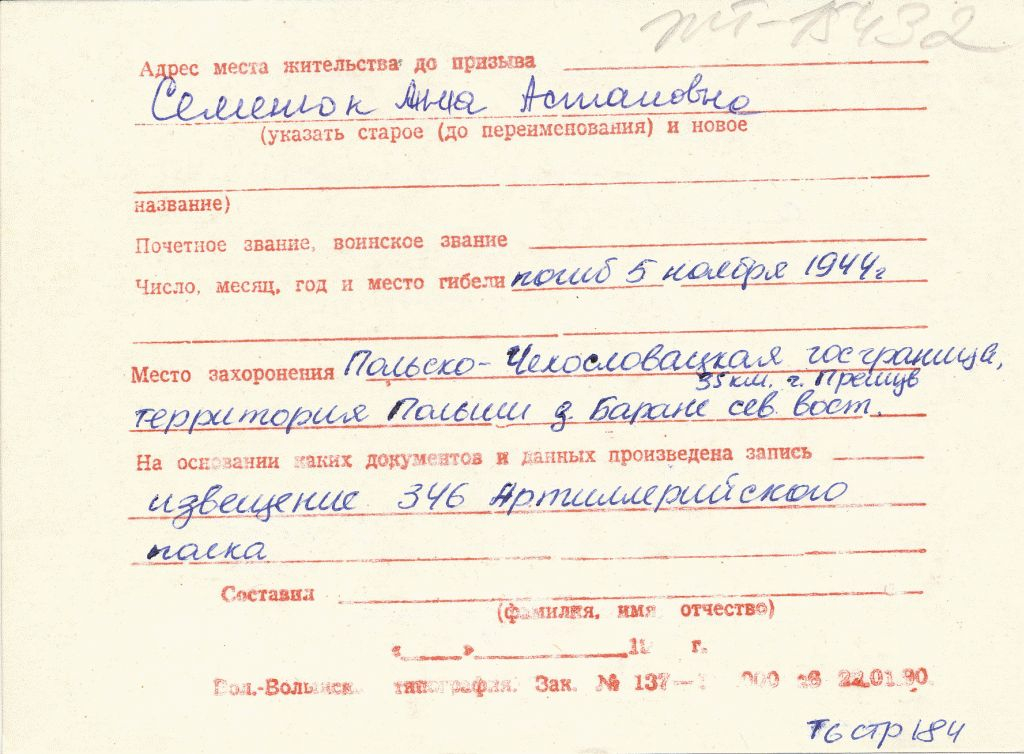 пт-15432
Адрес места жительства до призыва
Семенюк Анна Астаповно
(указать старое (до переименования) и новое
название)
Почетное звание, воинское звание
Число, месяц, год и место гибели погиб 5 ноября 1944г
Место захоронения Польско-Чехословацкая госграница,
35 км. г. Прешув
территория Польши д Баране сев. вост.
На основании каких документов и данных произведена запись
извещение 346 Артиллерийского
полка
Составил
(фамилия, имя отчество)
« » 19 г.
типография. Зак. № 137— 000 22.01.90.
Т 6 стр 184